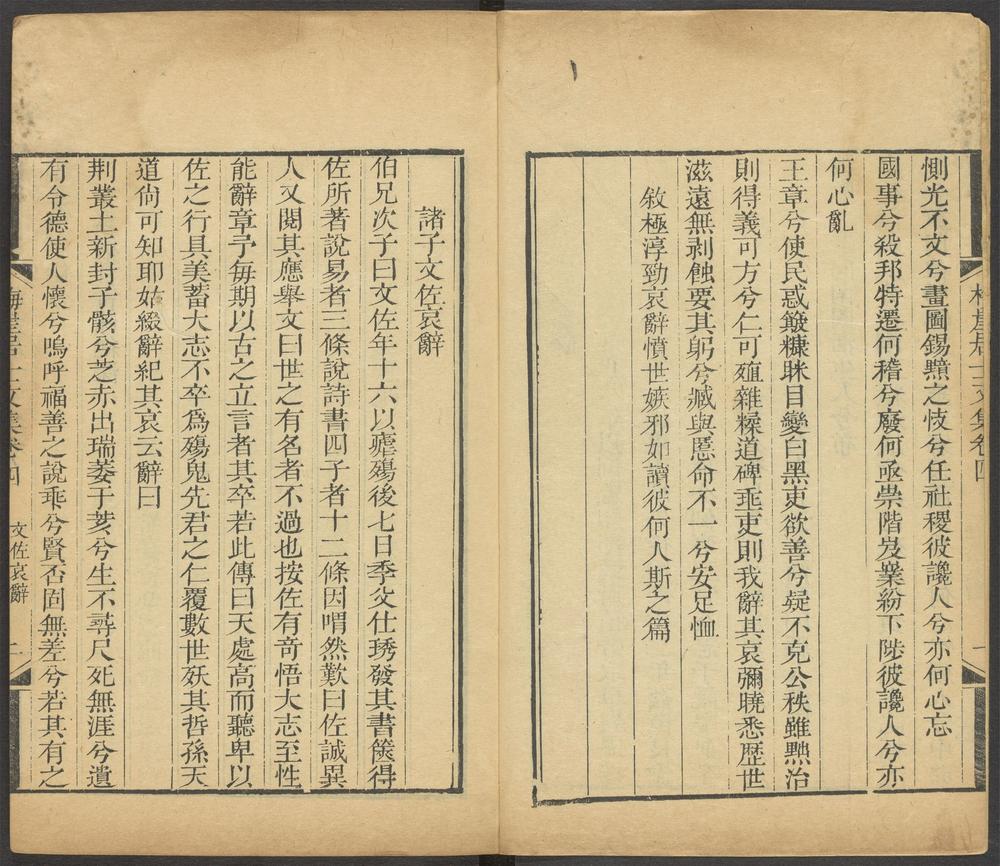 梅崖居士文集卷四
一
惻光不文兮畫圖錫黻之忮兮任社稷彼讒人兮亦何心忘
國事兮殺邦特遷何稽兮廢何亟崇階岌嶪紛下陟彼讒人兮亦
何心亂
王章兮使民惑簸糠眯目變白黑吏欲善兮疑不克公秩雖黜治
則得義可方兮仁可殖雜糅道碑乖吏則我辭其哀彌曉悉歷世
滋遠無剥蝕要其躬兮臧與慝命不一兮安足恤
敘極淳勁哀辭憤世嫉邪如讀彼何人斯之篇
諸子文佐哀辭
伯兄次子曰文佐年十六以瘧殤後七日季父仕琇發其書篋得
佐所著說易者三條說詩書四子者十二條因喟然歎曰佐誠異
人又閱其應舉文曰世之有名者不過也按佐有奇悟大志至性
能辭章予每期以古之立言者其卒若此傳曰天處高而聽卑以
佐之行具美蓄大志不卒爲殤鬼先君之仁覆數世殀其哲孫天
道尙可知耶姑綴辭紀其哀云辭曰
荆叢土新封子骸兮芝赤出瑞萎于荄兮生不尋尺死無涯兮遺
有令德使人懷兮嗚呼福善之說乖兮賢否固無差兮若其有之
梅崖居士文集卷四
文佐哀辭
二